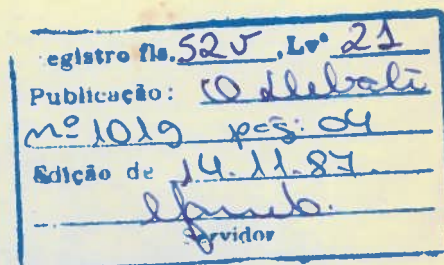 egistro fls. 52v , Lvº 21
Publicação: O Debate
nº 1019 pág: 04
Edição de 14.11.87
Servidor